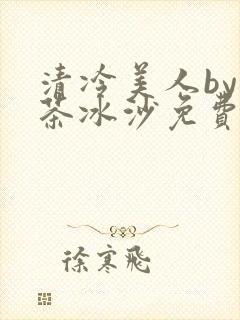 清冷美人by
茶冰沙免費
徐寒飛